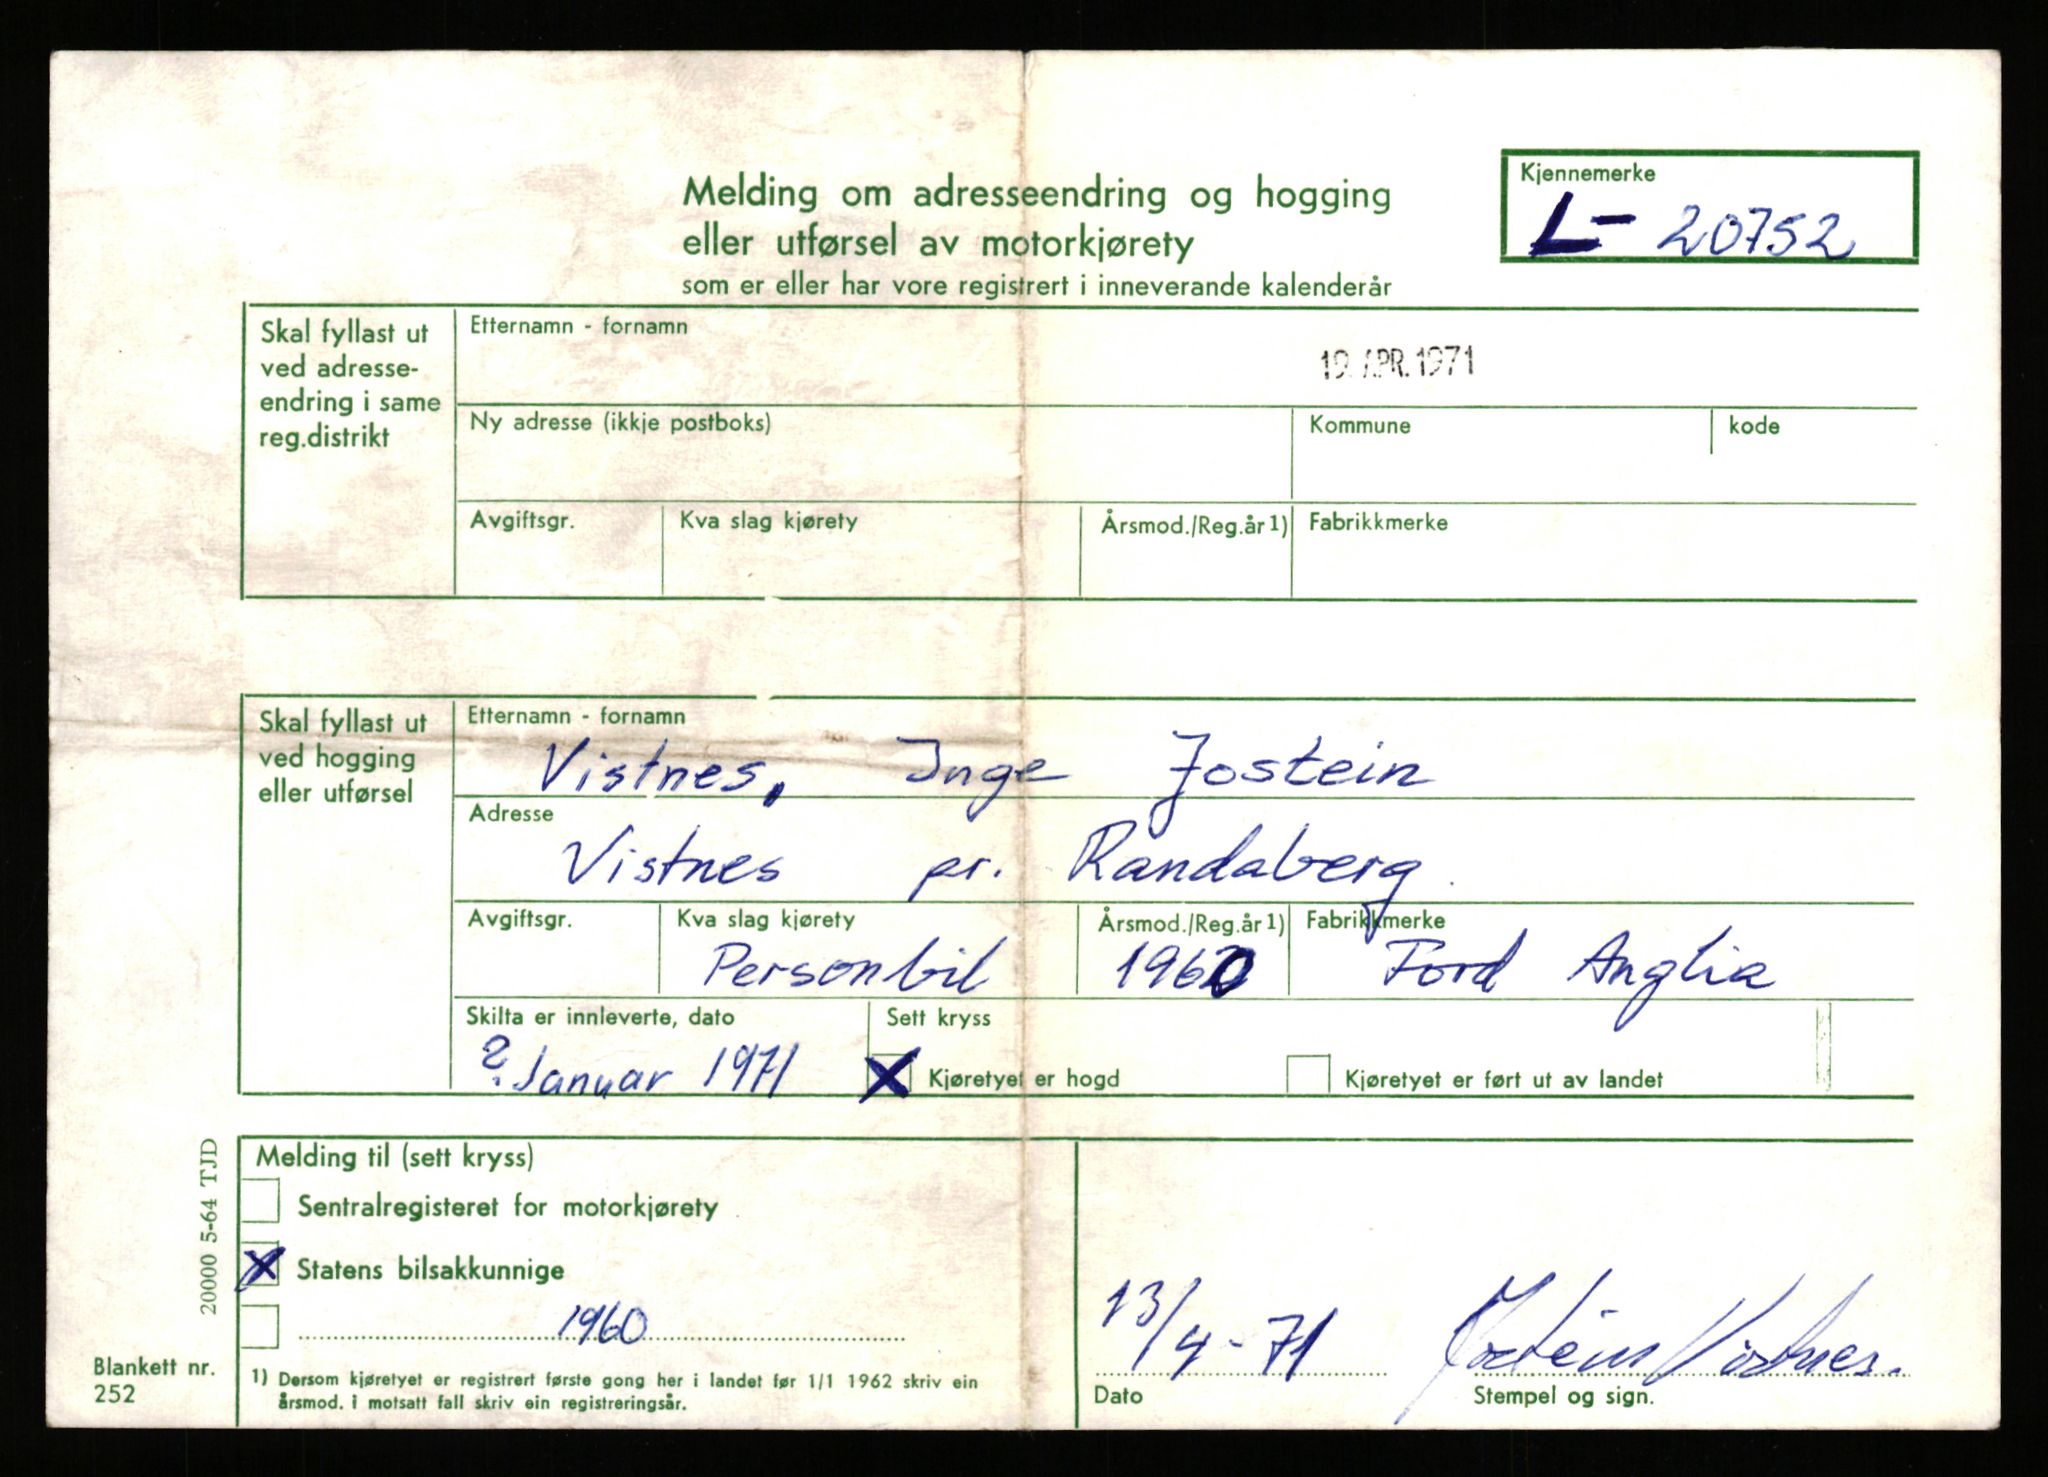 Melding om adresseendring og hogging
eller utførsel av motorkjørety
som er eller har vore registrert i inneverande kalenderår
Kjennemerke
L- 20752
Skal fyllast ut
ved adresse-
endring i same
reg.distrikt
Etternamn - fornamn
19. APR. 1971
Ny adresse (ikkje postboks)
Kommune
kode
Avgiftsgr.
Kva slag kjørety
Årsmod./Reg.år 1)
Fabrikkmerke
Skal fyllast ut
ved hogging
eller utførsel
Etternamn - fornamn
Vistnes, Inge Jostein
Adresse
Vistnes pr. Randaberg
Avgiftsgr.
Kva slag kjørety
Personbil
Årsmod./Reg.år 1)
1960
Fabrikkmerke
Ford Anglia
Skilta er innleverte, dato
? Januar 1971
Sett kryss
X Kjøretyet er hogd
Kjøretyet er ført ut av landet
Melding til (sett kryss)
Sentralregisteret for motorkjørety
X Statens bilsakkunnige
1960
1) Dersom kjøretyet er registrert første gong her i landet før 1/1 1962 skriv ein
årsmod. i motsatt fall skriv ein registreringsår.
20000 5-64 TJD
Blankett nr.
252
13/4-71
Dato
Jostein Vistnes.
Stempel og sign.